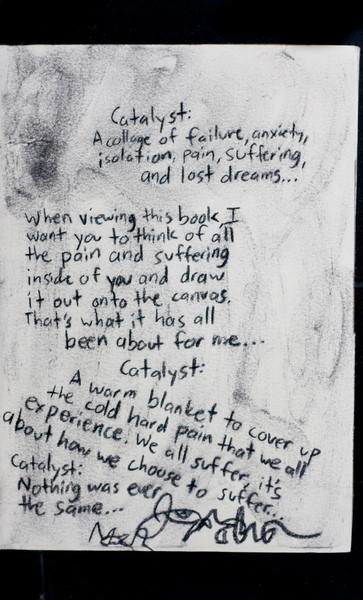 Catalyst:
A collage of failure, anxiety,
isolation, pain, suffering,
and lost dreams...
When viewing this book, I
want you to think of all
the pain and suffering
inside of you and draw
it out onto the canvas.
That's what it has all
been about for me...
Catalyst:
A warm blanket to cover up
the cold hard pain that we all
experience. We all suffer, it's
about how we choose to suffer...
Catalyst:
Nothing was ever
the same...